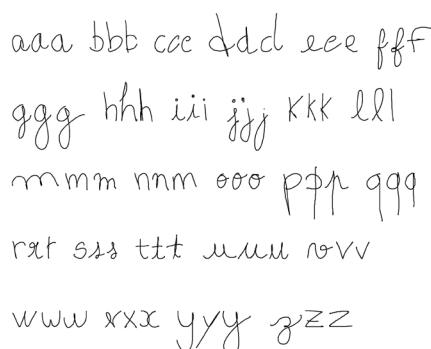 aaa bbb ccc ddd eee fff
ggg hhh iii jjj kkk lll
mmm nnn ooo ppp qqq
rrr sss ttt uuu vvv
www xxx yyy zzz